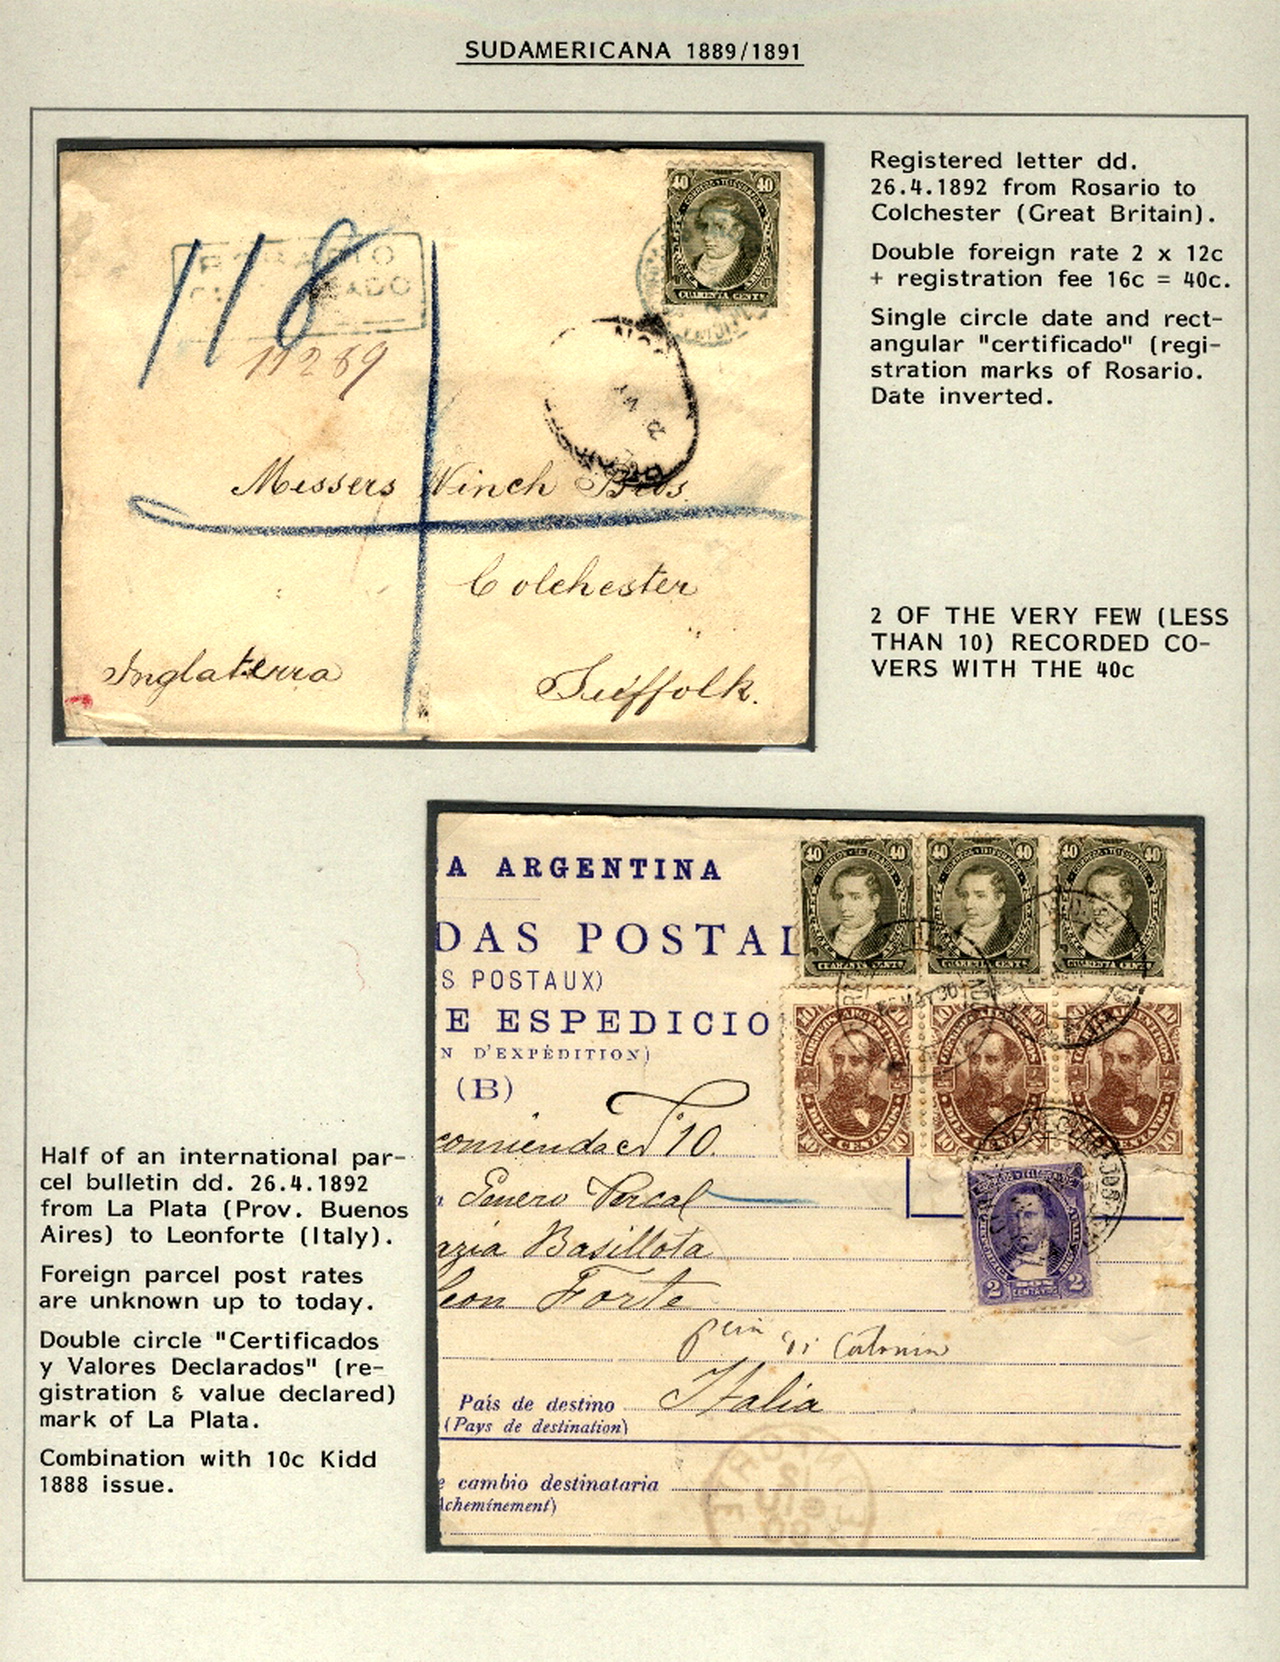 SUDAMERICANA 1889/1891
Registered letter dd.
26.4.1892 from Rosario to
Colchester (Great Britain).
Double foreign rate 2 x 12c
+ registration fee 16c = 40c.
Single circle date and rect-
angular "certificado" (regi-
stration marks of Rosario.
Date inverted.
40 40
118
11289
Messers Winch Bros
Colchester
Inglaterra
Suffolk.
2 OF THE VERY FEW (LESS
THAN 10) RECORDED CO-
VERS WITH THE 40c
A ARGENTINA
DAS POSTAL
S POSTAUX)
E ESPEDICIO
N D'EXPÉDITION)
(B)
40 40 40 40 40 40
CORREOS ARGENTINOS
DIEZ CENTAVOS
2 2
10.
Genero Percal
Basillota
Leon Forte
Italia
País de destino
(Pays de destination)
e cambio destinataria
Acheminement)
Half of an international par-
cel bulletin dd. 26.4.1892
from La Plata (Prov. Buenos
Aires) to Leonforte (Italy).
Foreign parcel post rates
are unknown up to today.
Double circle "Certificados
y Valores Declarados" (re-
gistration & value declared)
mark of La Plata.
Combination with 10c Kidd
1888 issue.